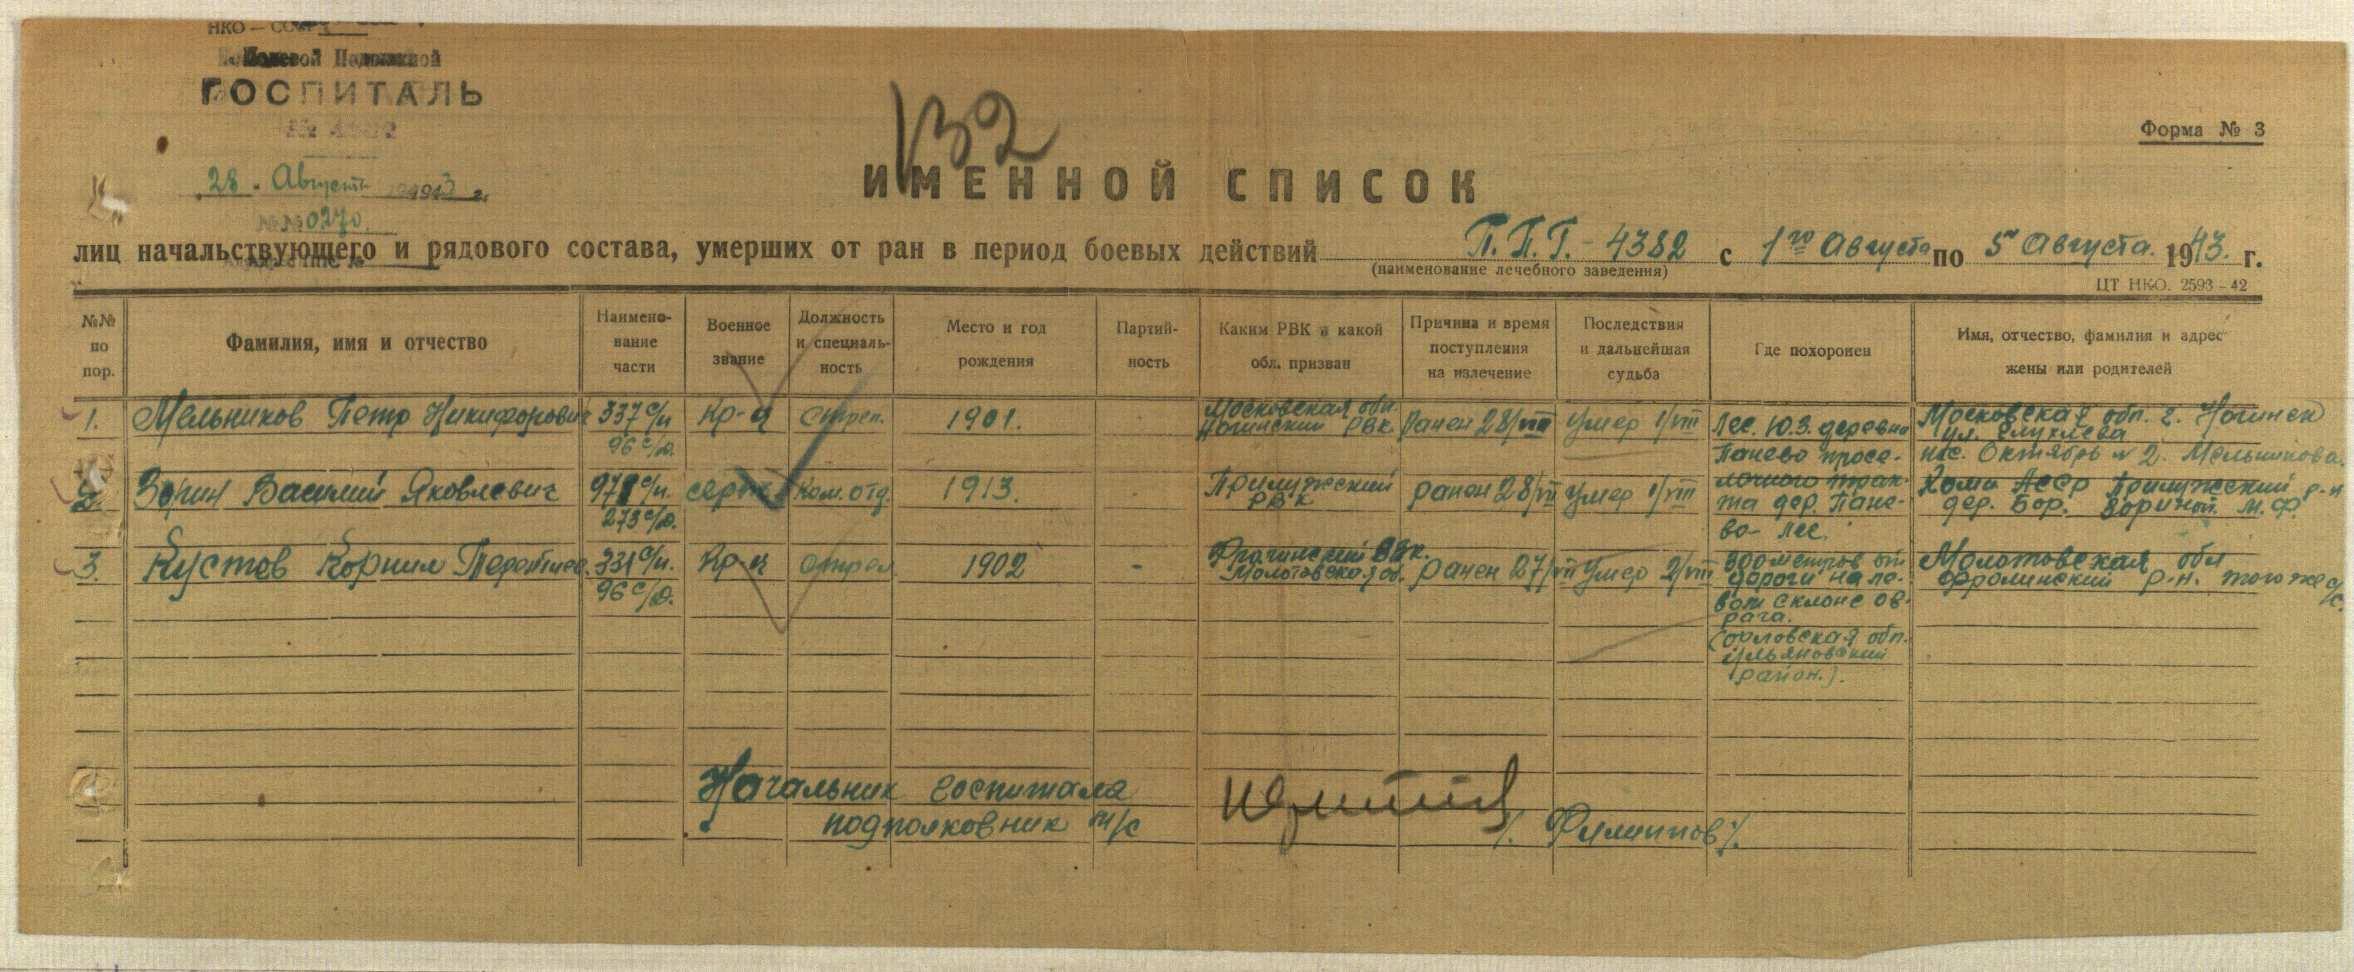 НКО — СССР
Полевой Подвижной
ГОСПИТАЛЬ
№ 4382
28 Август 1943 г.
№ 0270
132
Форма № 3
ИМЕННОЙ СПИСОК
лиц начальствующего и рядового состава, умерших от ран в период боевых действий П.П.Г. - 4382 с 1го Августа по 5 Августа. 1943. г.
(наименование лечебного заведения)
ЦТ НКО. 2593 - 42
№№ по пор.
Фамилия, имя и отчество
Наименование части
Военное звание
Должность и специальность
Место и год рождения
Партийность
Каким РВК и какой обл. призван
Причина и время поступления на излечение
Последствия и дальнейшая судьба
Где похоронен
Имя, отчество, фамилия и адрес жены или родителей
1. Мельников Петр Никифорович 337 с/п. 96 с/д. Кр-ц стрел. 1901. Московская обл. Ногинский РВК. Ранен 28/VII умер 1/VIII
Лес. Ю.З. деревни Панево просе-
Московская обл. г. Ногинск
ул. пос. Октябрь № 2. Мельникова.
2. Зорин Василий Яковлевич 971 с/п. 273 с/д. серж. Ком. отд. 1913. Прилужский РВК ранен 28/VII умер 1/VIII
лочного трак-
та дер. Пане-
во - лес.
Коми АССР Прилужский р-н
дер. Бор. Зориной М. Ф.
3. Кустов Корнил 331 с/п. 96 с/д. Кр-ц стрел 1902 - РВК. Молотовская об. ранен 27/VII умер 2/VIII
300 метров от
дороги на ле-
вом склоне ов-
рага.
(Орловская обл.
Ульяновский
район.).
Молотовская обл
р-н. того же с/с.
Начальник госпиталя
подполковник м/с /. Филиппов /.